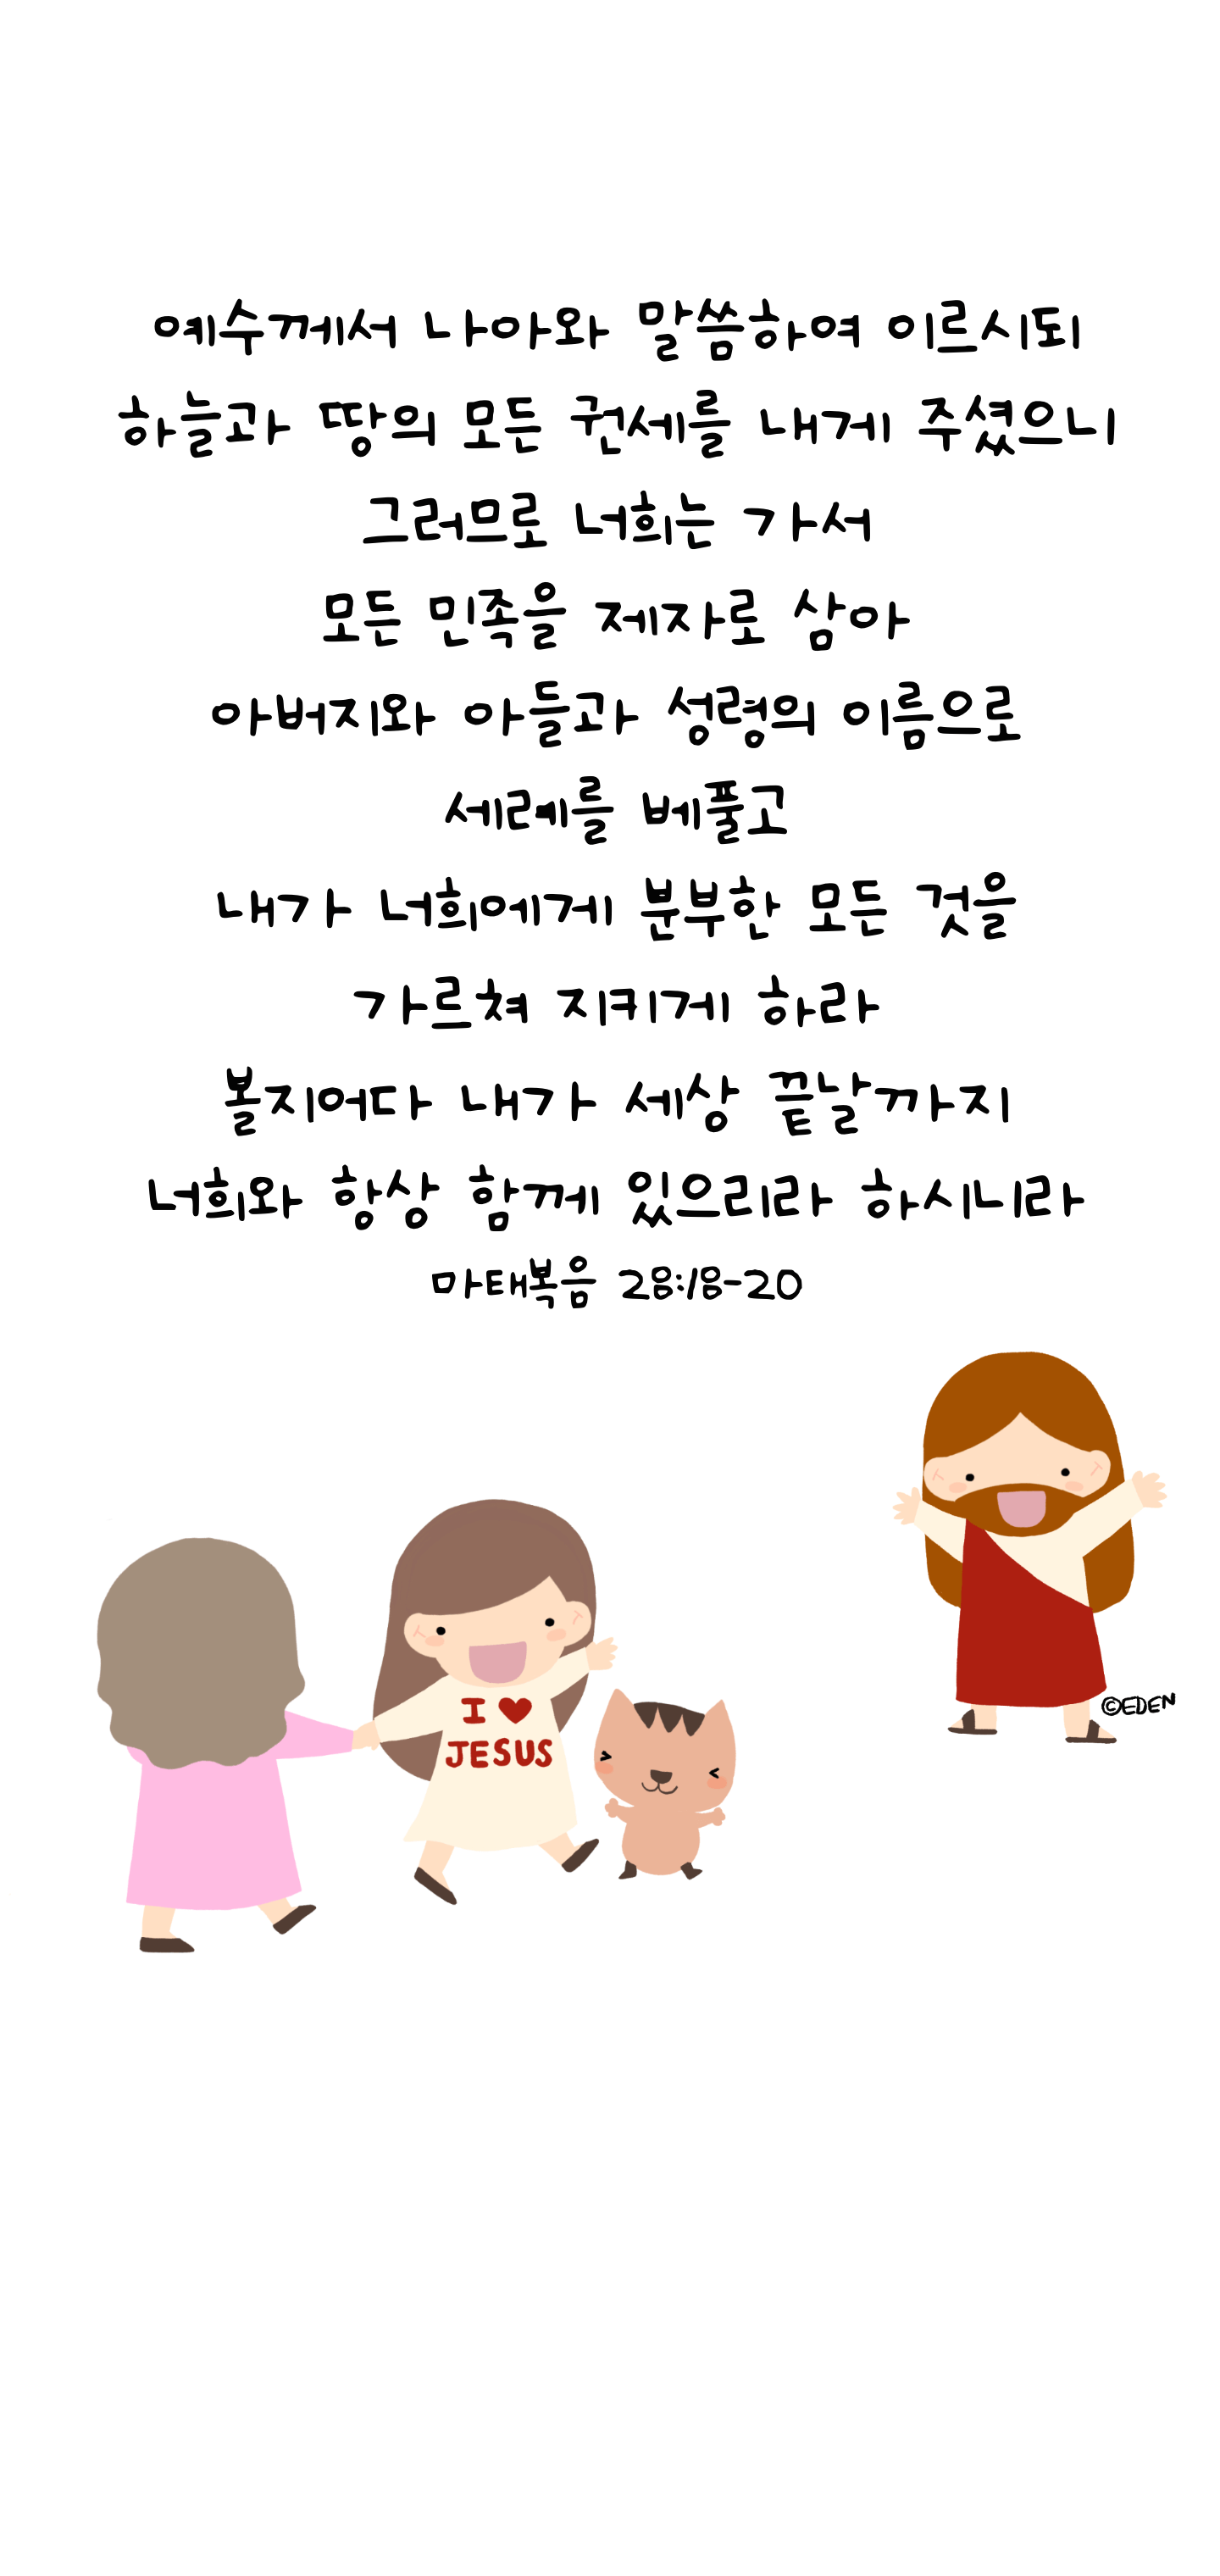 예수께서 나아와 말씀하여 이르시되
하늘과 땅의 모든 권세를 내게 주셨으니
그러므로 너희는 가서
모든 민족을 제자로 삼아
아버지와 아들과 성령의 이름으로
세례를 베풀고
내가 너희에게 분부한 모든 것을
가르쳐 지키게 하라
볼지어다 내가 세상 끝날까지
너희와 항상 함께 있으리라 하시니라
마태복음 28:18-20
I ♥
JESUS
©EDEN